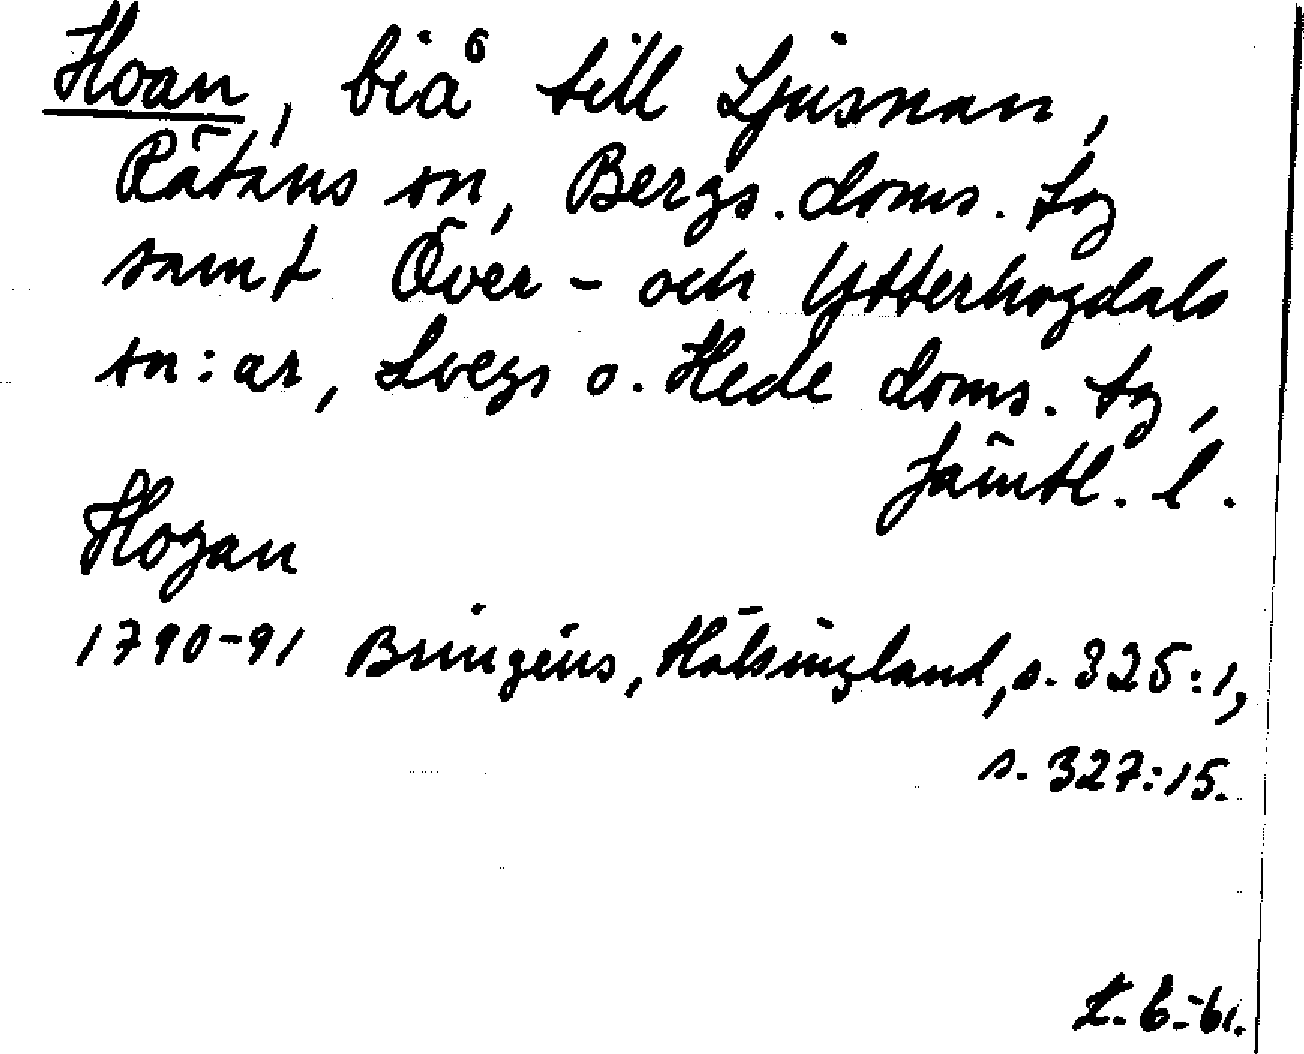 Hoan, biå till Ljusnan,
Rätans sn, Bergs. doms. tg
samt Över- och Ytterhogdals
sn:ar, Svegs o. Hede doms. tg,
Jämtl. l.
Hogan
1790-91 Bringéus, Hälsingland, s. 325:1,
s. 327:15.